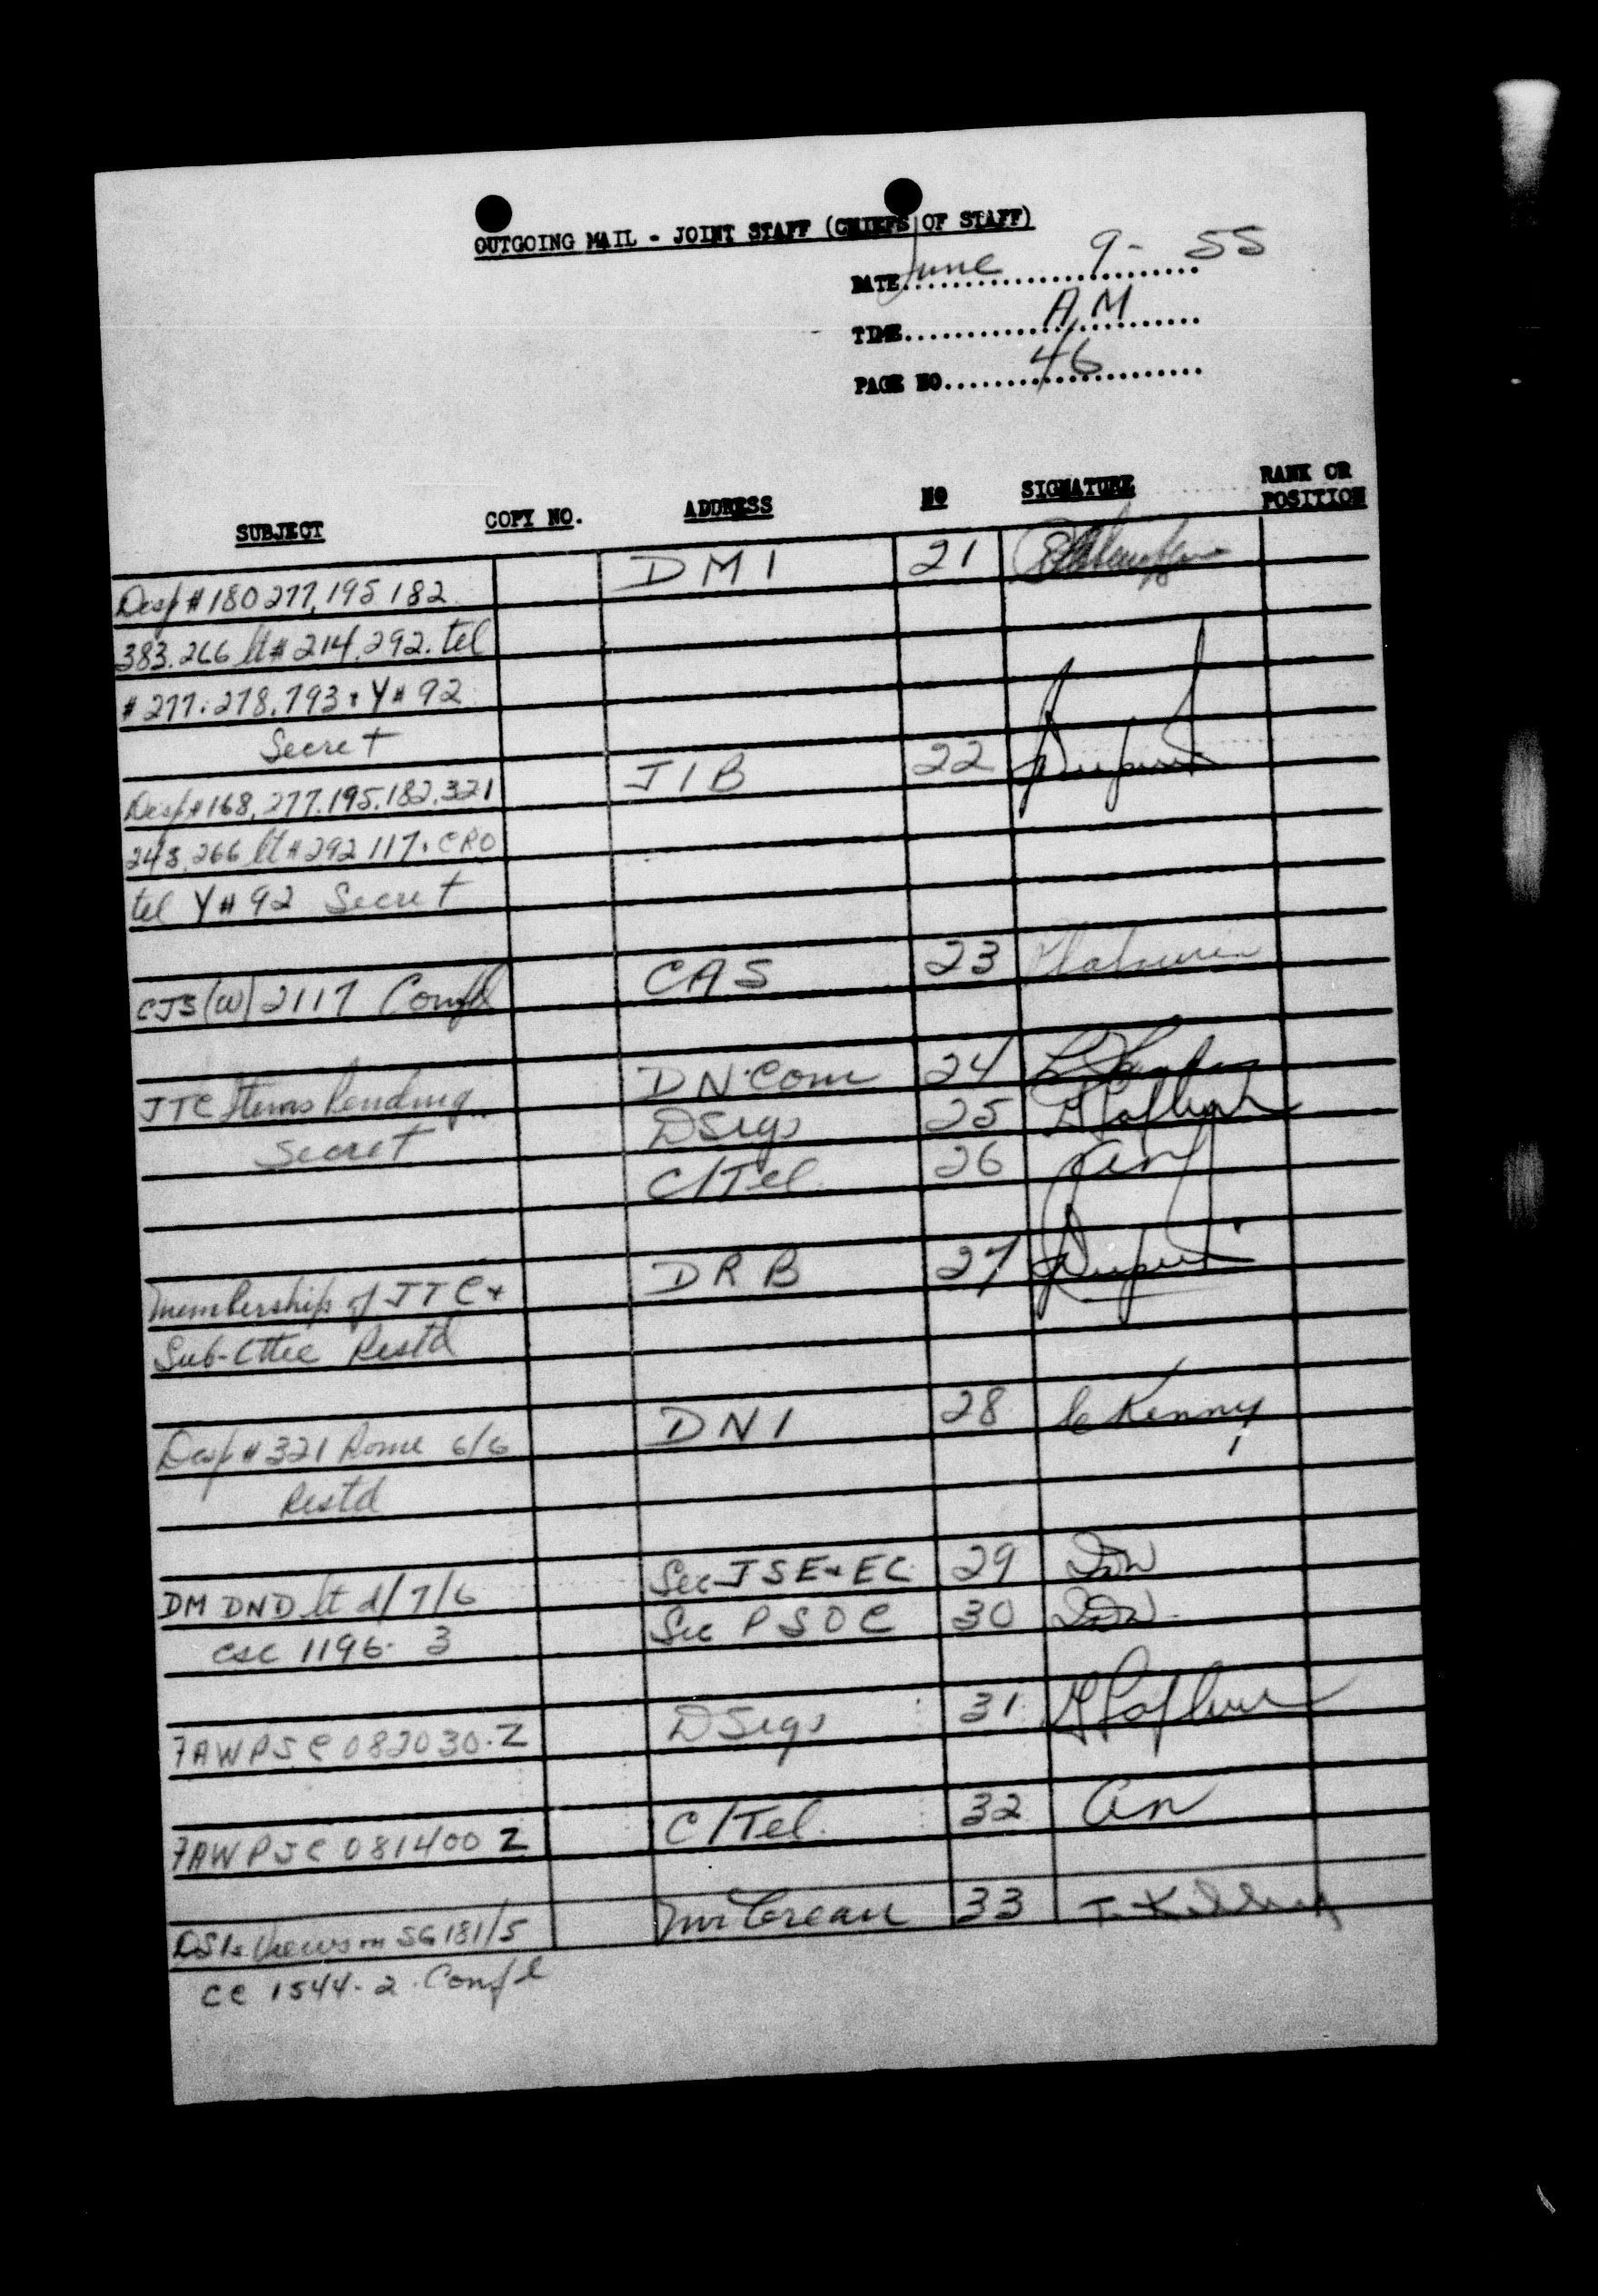 OUTGOING MAIL - JOINT STAFF (CHIEFS OF STAFF)
DATE June 9 - 55
TIME A.M
PAGE NO 46
SUBJECT COPY NO. ADDRESS NO SIGNATURE RANK OR POSITION
Desp # 180 277, 195 182 DMI 21
383. 266 lt # 214. 292. tel
# 277. 278. 793 & Y # 92
Secret
Desp # 168, 277. 195. 182. 321 JIB 22
243. 266 lt # 292 117. CRO
tel Y # 92 Secret
CJS (W) 2117 Confd CAS 23
JTC Items Pending DN.Com 24
Secret DSigs 25
C/Tel. 26 an
Membership of JTC & DRB 27
Sub-Cttee Restd
Desp # 321 Rome 6/6 DNI 28 C Kenny
Restd
DM DND lt d/ 7/6 Sec JSE & EC 29
CSC 1196. 3 Sec PSOC 30
7AWPSC 082030.Z DSigs 31
7AWPJC 081400 Z C/Tel. 32 an
DSI's Views on SG 181/5 Mr Crean 33
CC 1544-2. Confl